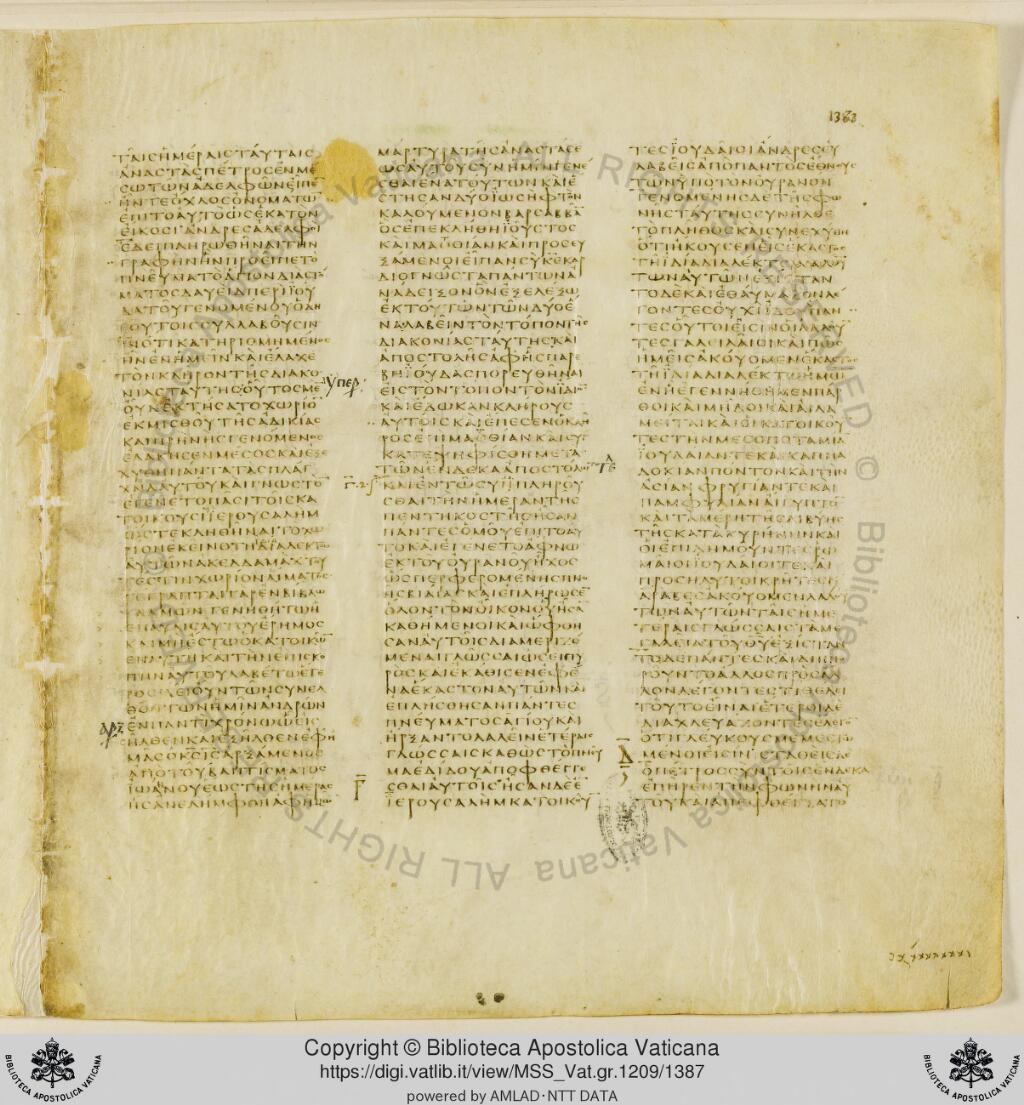 ΤΑΙϹΗΜΕΡΑΙϹΤΑΥΤΑΙϹ
ΑΝΑϹΤΑϹΠΕΤΡΟϹΕΝΜΕ
ϹΩΤΩΝΑΔΕΛΦΩΝΕΙΠΕ
ΗΝΤΕΟΧΛΟϹΟΝΟΜΑΤΩ
ΕΠΙΤΟΑΥΤΟΩϹΕΚΑΤΟΝ
ΕΙΚΟϹΙΑΝΔΡΕϹΑΔΕΛΦΟΙ
ΕΔΕΙΠΛΗΡΩΘΗΝΑΙΤΗΝ
ΓΡΑΦΗΝΗΝΠΡΟΕΙΠΕΤΟ
ΠΝΕΥΜΑΤΟΑΓΙΟΝΔΙΑϹΤΟ
ΜΑΤΟϹΔΑΥΕΙΔΠΕΡΙΙΟΥ
ΔΑΤΟΥΓΕΝΟΜΕΝΟΥΟΔΗ
ΓΟΥΤΟΙϹϹΥΛΛΑΒΟΥϹΙΝ
ΙΝΟΤΙΚΑΤΗΡΙΘΜΗΜΕΝΟϹ
ΗΝΕΝΗΜΕΙΝΚΑΙΕΛΑΧΕ
ΤΟΝΚΛΗΡΟΝΤΗϹΔΙΑΚΟ
ΝΙΑϹΤΑΥΤΗϹΟΥΤΟϹΜΕ
ΟΥΝΕΚΤΗϹΑΤΟΧΩΡΙΟ
ΕΚΜΙϹΘΟΥΤΗϹΑΔΙΚΙΑϹ
ΚΑΙΠΡΗΝΗϹΓΕΝΟΜΕΝΟϹ
ΕΛΑΚΗϹΕΝΜΕϹΟϹΚΑΙΕΞΕ
ΧΥΘΗΠΑΝΤΑΤΑϹΠΛΑΓ
ΧΝΑΑΥΤΟΥΚΑΙΓΝΩϹΤΟ
ΕΓΕΝΕΤΟΠΑϹΙΤΟΙϹΚΑ
ΤΟΙΚΟΥϹΙΙΕΡΟΥϹΑΛΗΜ
ΩϹΤΕΚΛΗΘΗΝΑΙΤΟΧΩ
ΡΙΟΝΕΚΕΙΝΟΤΗΔΙΑΛΕΚΤΩ
ΑΥΤΩΝΑΚΕΛΔΑΜΑΧΤΟΥ
ΤΕϹΤΙΝΧΩΡΙΟΝΑΙΜΑΤΟϹ
ΓΕΓΡΑΠΤΑΙΓΑΡΕΝΒΙΒΛΩ
ΨΑΛΜΩΝΓΕΝΗΘΗΤΩΗ
ΕΠΑΥΛΙϹΑΥΤΟΥΕΡΗΜΟϹ
ΚΑΙΜΗΕϹΤΩΟΚΑΤΟΙΚΩ
ΕΝΑΥΤΗΚΑΙΤΗΝΕΠΙϹΚΟ
ΠΗΝΑΥΤΟΥΛΑΒΕΤΩΕΤΕ
ΡΟϹΔΕΙΟΥΝΤΩΝϹΥΝΕΛ
ΘΟΝΤΩΝΗΜΙΝΑΝΔΡΩΝ
ΕΝΠΑΝΤΙΧΡΟΝΩΩΕΙϹ
ΗΛΘΕΝΚΑΙΕΞΗΛΘΕΝΕΦΗ
ΜΑϹΟΚϹΙϹΑΡΞΑΜΕΝΟϹ
ΑΠΟΤΟΥΒΑΠΤΙϹΜΑΤΟϹ
ΙΩΑΝΟΥΕΩϹΤΗϹΗΜΕΡΑϹ
ΗϹΑΝΕΛΗΜΦΘΗΑΦΗΜΩ
ΜΑΡΤΥΡΑΤΗϹΑΝΑϹΤΑϹΕ
ΩϹΑΥΤΟΥϹΥΝΗΜΙΝΓΕΝΕ
ϹΘΑΙΕΝΑΤΟΥΤΩΝΚΑΙΕ
ϹΤΗϹΑΝΔΥΟΙΩϹΗΦΤΟΝ
ΚΑΛΟΥΜΕΝΟΝΒΑΡϹΑΒΒΑ
ΟϹΕΠΕΚΛΗΘΗΙΟΥϹΤΟϹ
ΚΑΙΜΑΘΘΙΑΝΚΑΙΠΡΟϹΕΥ
ΞΑΜΕΝΟΙΕΙΠΑΝϹΥΚΕΚΑΡ
ΔΙΟΓΝΩϹΤΑΠΑΝΤΩΝΑ
ΝΑΔΕΙΞΟΝΟΝΕΞΕΛΕΞΩ
ΕΚΤΟΥΤΩΝΤΩΝΔΥΟΕ
ΝΑΛΑΒΕΙΝΤΟΝΤΟΠΟΝΤΗϹ
ΔΙΑΚΟΝΙΑϹΤΑΥΤΗϹΚΑΙ
ΑΠΟϹΤΟΛΗϹΑΦΗϹΠΑΡΕ
ΒΗΙΟΥΔΑϹΠΟΡΕΥΘΗΝΑΙ
ΕΙϹΤΟΝΤΟΠΟΝΤΟΝΙΔΙΟ
ΚΑΙΕΔΩΚΑΝΚΛΗΡΟΥϹ
ΑΥΤΟΙϹΚΑΙΕΠΕϹΕΝΟΚΛΗ
ΡΟϹΕΠΙΜΑΘΘΙΑΝΚΑΙϹΥΓ
ΚΑΤΕΨΗΦΙϹΘΗΜΕΤΑ
ΤΩΝΕΝΔΕΚΑΑΠΟϹΤΟΛΩ
ΚΑΙΕΝΤΩϹΥΝΠΛΗΡΟΥ
ϹΘΑΙΤΗΝΗΜΕΡΑΝΤΗϹ
ΠΕΝΤΗΚΟϹΤΗϹΗϹΑΝ
ΠΑΝΤΕϹΟΜΟΥΕΠΙΤΟΑΥ
ΤΟΚΑΙΕΓΕΝΕΤΟΑΦΝΩ
ΕΚΤΟΥΟΥΡΑΝΟΥΗΧΟϹ
ΩϹΠΕΡΦΕΡΟΜΕΝΗϹΠΝΟ
ΗϹΒΙΑΙΑϹΚΑΙΕΠΛΗΡΩϹΕ
ΟΛΟΝΤΟΝΟΙΚΟΝΟΥΗϹΑ
ΚΑΘΗΜΕΝΟΙΚΑΙΩΦΘΗ
ϹΑΝΑΥΤΟΙϹΔΙΑΜΕΡΙΖΟ
ΜΕΝΑΙΓΛΩϹϹΑΙΩϹΕΙΠΥ
ΡΟϹΚΑΙΕΚΑΘΙϹΕΝΕΦΕ
ΝΑΕΚΑϹΤΟΝΑΥΤΩΝΚΑΙ
ΕΠΛΗϹΘΗϹΑΝΠΑΝΤΕϹ
ΠΝΕΥΜΑΤΟϹΑΓΙΟΥΚΑΙ
ΗΡΞΑΝΤΟΛΑΛΕΙΝΕΤΕΡΑΙϹ
ΓΛΩϹϹΑΙϹΚΑΘΩϹΤΟΠΝΕΥ
ΜΑΕΔΙΔΟΥΑΠΟΦΘΕΓΓΕ
ϹΘΑΙΑΥΤΟΙϹΗϹΑΝΔΕΕ
ΙΕΡΟΥϹΑΛΗΜΚΑΤΟΙΚΟΥ
ΤΕϹΙΟΥΔΑΙΟΙΑΝΔΡΕϹΕΥ
ΛΑΒΕΙϹΑΠΟΠΑΝΤΟϹΕΘΝΟΥϹ
ΤΩΝΥΠΟΤΟΝΟΥΡΑΝΟΝ
ΓΕΝΟΜΕΝΗϹΔΕΤΗϹΦΩ
ΝΗϹΤΑΥΤΗϹϹΥΝΗΛΘΕ
ΤΟΠΛΗΘΟϹΚΑΙϹΥΝΕΧΥΘΗ
ΟΤΙΗΚΟΥϹΕΝΕΙϹΕΚΑϹΤΟϹ
ΤΗΙΔΙΑΔΙΑΛΕΚΤΩΛΑΛΟΥ
ΤΩΝΑΥΤΩΝΕΞΙϹΤΑΝ
ΤΟΔΕΚΑΙΕΘΑΥΜΑΖΟΝΛΕ
ΓΟΝΤΕϹΟΥΧΙΙΔΟΥΠΑΝ
ΤΕϹΟΥΤΟΙΕΙϹΙΝΟΙΛΑΛΟΥ
ΤΕϹΓΑΛΕΙΛΑΙΟΙΚΑΙΠΩϹ
ΗΜΕΙϹΑΚΟΥΟΜΕΝΕΚΑϹΤΟϹ
ΤΗΙΔΙΑΔΙΑΛΕΚΤΩΗΜΩ
ΕΝΗΕΓΕΝΝΗΘΗΜΕΝΠΑΡ
ΘΟΙΚΑΙΜΗΔΟΙΚΑΙΑΙΛΑ
ΜΕΙΤΑΙΚΑΙΟΙΚΑΤΟΙΚΟΥ
ΤΕϹΤΗΝΜΕϹΟΠΟΤΑΜΙΑ
ΙΟΥΔΑΙΑΝΤΕΚΑΙΚΑΠΠΑ
ΔΟΚΙΑΝΠΟΝΤΟΝΚΑΙΤΗΝ
ΑϹΙΑΝΦΡΥΓΙΑΝΤΕΚΑΙ
ΠΑΜΦΥΛΙΑΝΑΙΓΥΠΤΟ
ΚΑΙΤΑΜΕΡΗΤΗϹΛΙΒΥΗϹ
ΤΗϹΚΑΤΑΚΥΡΗΝΗΝΚΑΙ
ΟΙΕΠΙΔΗΜΟΥΝΤΕϹΡΩ
ΜΑΙΟΙΙΟΥΔΑΙΟΙΤΕΚΑΙ
ΠΡΟϹΗΛΥΤΟΙΚΡΗΤΕϹΚΑΙ
ΑΡΑΒΕϹΑΚΟΥΟΜΕΝΛΑΛΟΥ
ΤΩΝΑΥΤΩΝΤΑΙϹΗΜΕ
ΤΕΡΑΙϹΓΛΩϹϹΑΙϹΤΑΜΕ
ΓΑΛΕΙΑΤΟΥΘΥΕΞΙϹΤΑΝ
ΤΟΔΕΠΑΝΤΕϹΚΑΙΔΙΗΠΟ
ΡΟΥΝΤΟΑΛΛΟϹΠΡΟϹΑΛ
ΛΟΝΛΕΓΟΝΤΕϹΤΙΘΕΛΕΙ
ΤΟΥΤΟΕΙΝΑΙΕΤΕΡΟΙΔΕ
ΔΙΑΧΛΕΥΑΖΟΝΤΕϹΕΛΕΓΟ
ΟΤΙΓΛΕΥΚΟΥϹΜΕΜΕϹΤΩ
ΜΕΝΟΙΕΙϹΙΝϹΤΑΘΕΙϹΔΕ
ΟΠΕΤΡΟϹϹΥΝΤΟΙϹΕΝΔΕΚΑ
ΕΠΗΡΕΝΤΗΝΦΩΝΗΝΑΥ
ΤΟΥΚΑΙΑΠΕΦΘΕΓΞΑΤΟ
Copyright © Biblioteca Apostolica Vaticana
https://digi.vatlib.it/view/MSS_Vat.gr.1209/1387
powered by AMLAD·NTT DATA
BIBLIOTECA APOSTOLICA VATICANA
BIBLIOTECA APOSTOLICA VATICANA